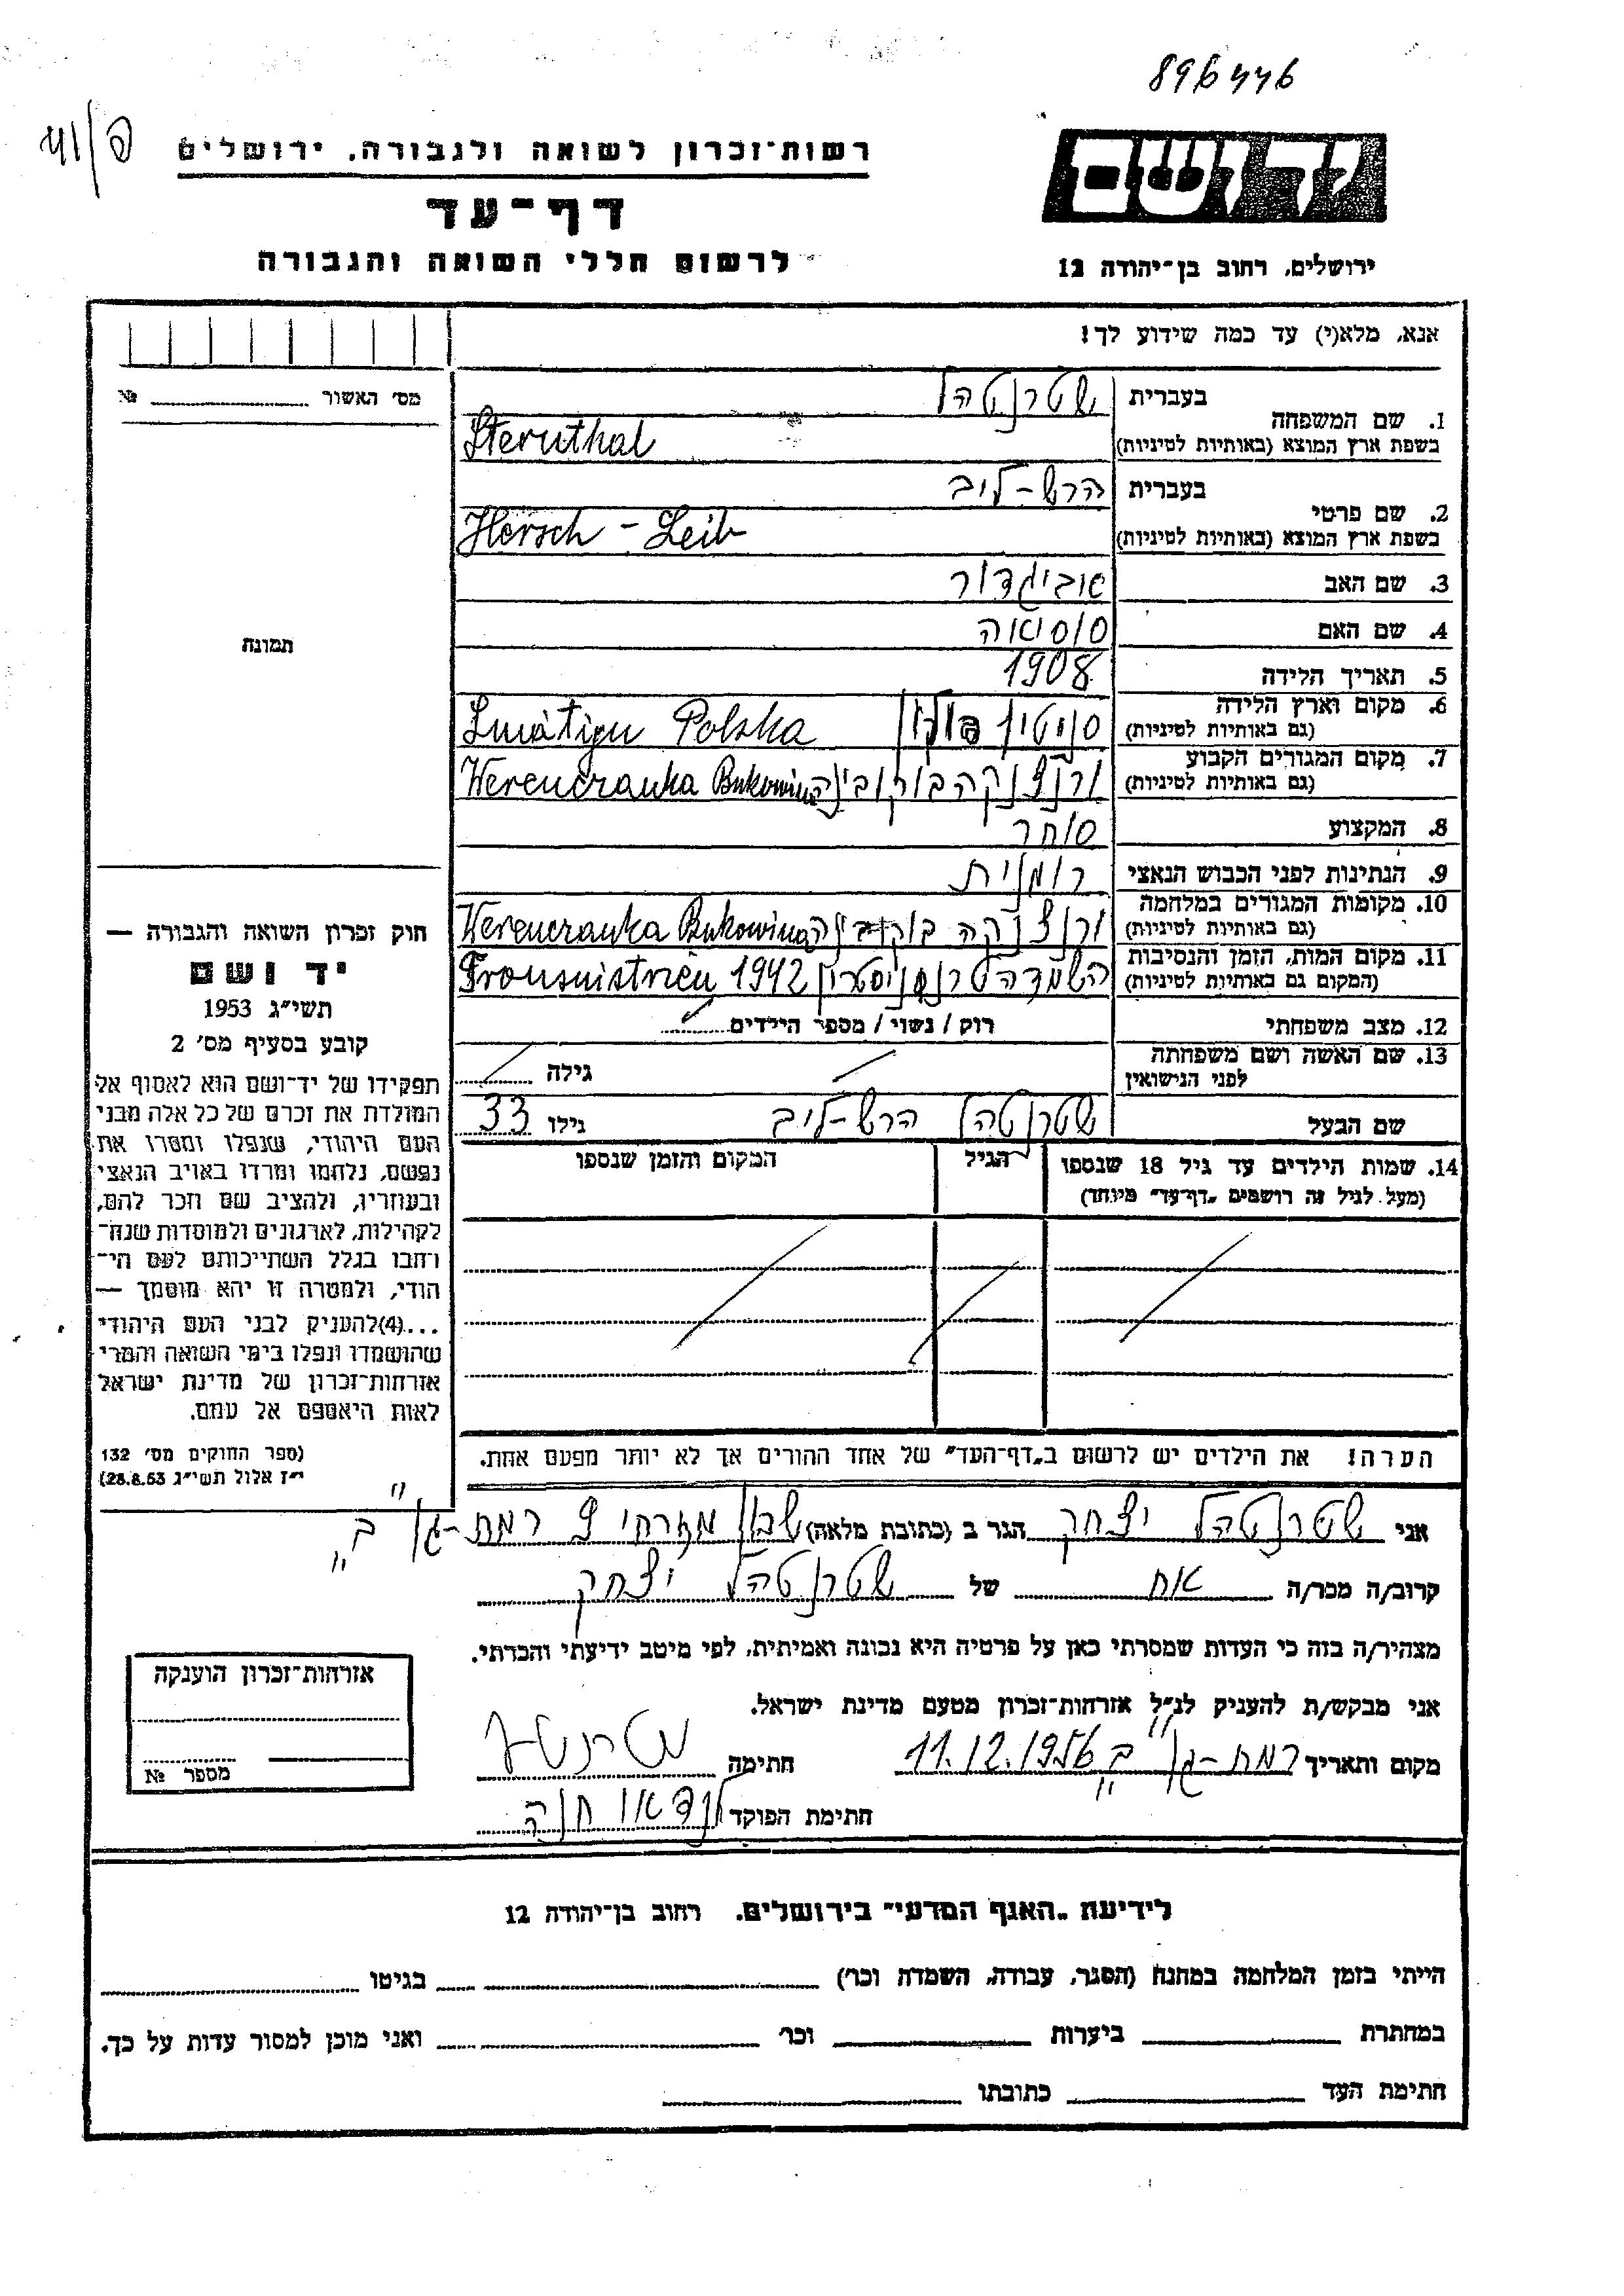 896446
רשות־זכרון לשואה ולגבורה, ירושלים
יד ושם
דף־עד
לרשום חללי השואה והגבורה
ירושלים, רחוב בן־יהודה 12
אנא, מלא(י) עד כמה שידוע לך!
מס׳ האשור № 
1. שם המשפחה בעברית שטרנטהל
בשפת ארץ המוצא (באותיות לטיניות) Sternthal
2. שם פרטי בעברית הרש-לייב
בשפת ארץ המוצא (באותיות לטיניות) Hersch - Leib
3. שם האב אביגדור
4. שם האם
תמונה
5. תאריך הלידה 1908
6. מקום וארץ הלידה (גם באותיות לטיניות) סניטין פולין Polska
7. מקום המגורים הקבוע (גם באותיות לטיניות) ורנצ'נקה בוקובינה Werenczanka Bukowina
8. המקצוע סוחר
9. הנתינות לפני הכבוש הנאצי רומנית
10. מקומות המגורים במלחמה (גם באותיות לטיניות) ורנצ'נקה בוקובינה Werenczanka Bukowina
11. מקום המות, הזמן והנסיבות (המקום גם באותיות לטיניות) השמדה 1942
12. מצב משפחתי רוק / נשוי / מספר הילדים
13. שם האשה ושם משפחתה לפני הנישואין גילה
שם הבעל שטרנטהל הרש-לייב גילו 33
14. שמות הילדים עד גיל 18 שנספו (מעל לגיל זה רושמים „דף־עד״ מיוחד) הגיל המקום והזמן שנספו
הערה! את הילדים יש לרשום ב„דף־העד״ של אחד ההורים אך לא יותר מפעם אחת.
חוק זכרון השואה והגבורה —
יד ושם
תשי״ג 1953
קובע בסעיף מס׳ 2
תפקידו של יד־ושם הוא לאסוף אל
המולדת את זכרם של כל אלה מבני
העם היהודי, שנפלו ומסרו את
נפשם, נלחמו ומרדו באויב הנאצי
ובעוזריו, ולהציב שם וזכר להם,
לקהילות, לארגונים ולמוסדות שנח־
רבו בגלל השתייכותם לעם הי־
הודי, ולמטרה זו יהא מוסמך —
...(4)להעניק לבני העם היהודי
שהושמדו ונפלו בימי השואה והמרי
אזרחות־זכרון של מדינת ישראל
לאות היאספם אל עמם.
(ספר החוקים מס׳ 132
י״ז אלול תשי״ג 28.8.53)
אני שטרנטהל יצחק הגר ב (כתובת מלאה) שכון מזרחי 9 רמת-גן ב״
קרוב/ה מכר/ה אח של שטרנטהל יצחק
מצהיר/ה בזה כי העדות שמסרתי כאן על פרטיה היא נכונה ואמיתית, לפי מיטב ידיעתי והכרתי.
אני מבקש/ת להעניק לנ״ל אזרחות־זכרון מטעם מדינת ישראל.
מקום ותאריך רמת-גן ב״ 11.12.1956 חתימה
חתימת הפוקד לנדאו חנה
אזרחות־זכרון הוענקה
מספר №
לידיעת „האגף המדעי״ בירושלים, רחוב בן־יהודה 12
הייתי בזמן המלחמה במחנה (הסגר, עבודה, השמדה וכר׳) בגיטו
במחתרת ביערות וכר׳ ואני מוכן למסור עדות על כך.
חתימת העד כתובתו